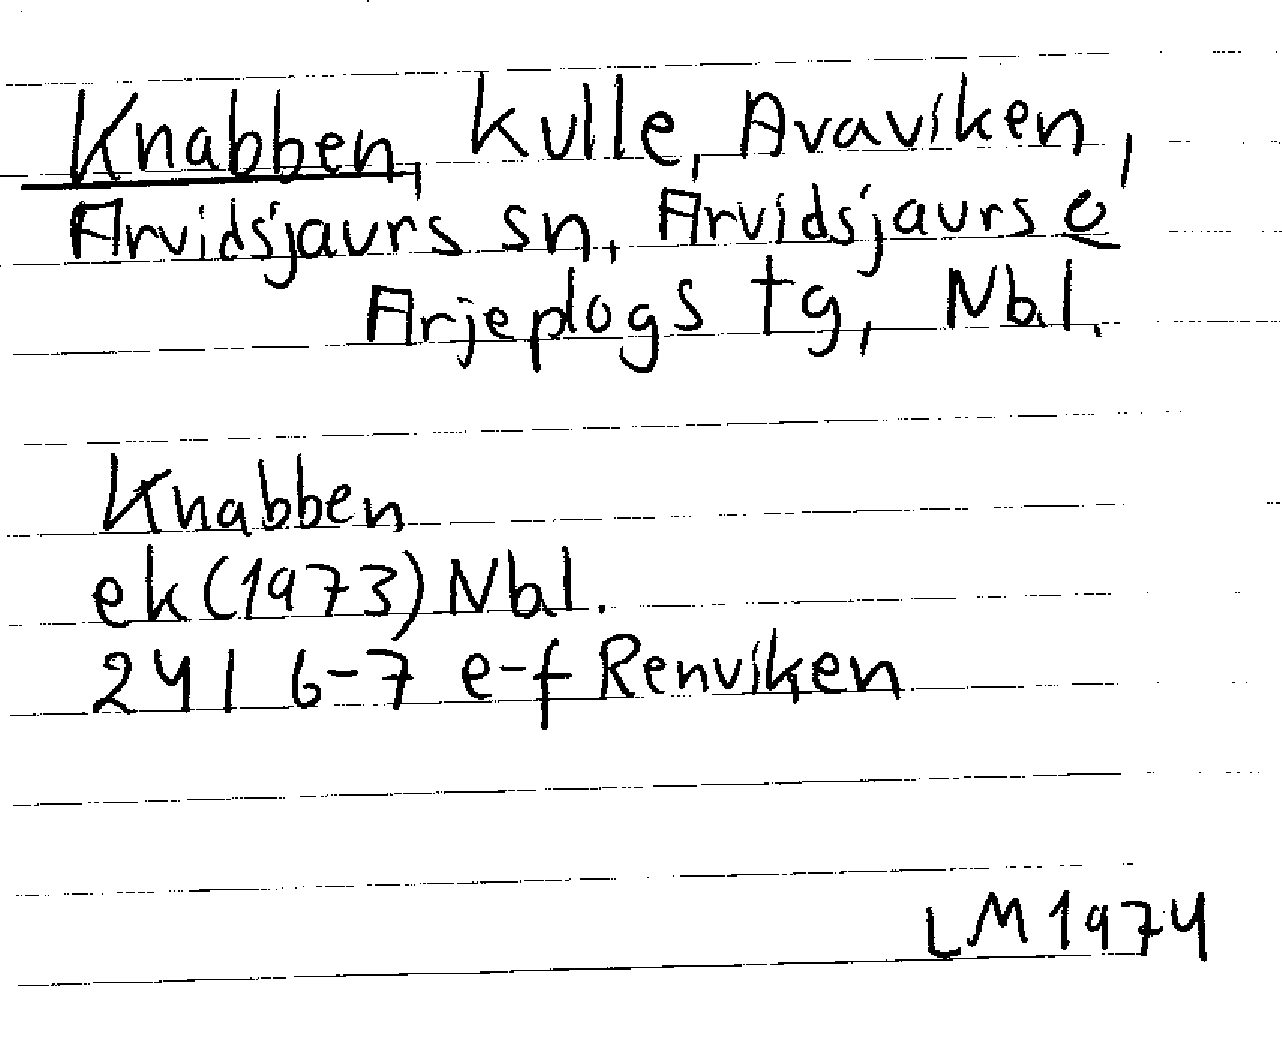 Knabben, kulle, Avaviken,
Arvidsjaurs sn, Arvidsjaurs o
Arjeplogs tg, Nbl.
Knabben
ek (1973) Nbl.
24 I 6-7 e-f Renviken
LM 1974